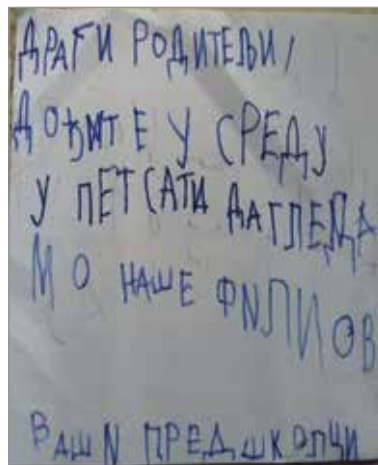 ДРАГИ РОДИТЕЉИ/
ДОЂИТЕ У СРЕДУ
У ПЕТ САТИ ДАГЛЕДА
МО НАШЕ ФИЛИОВ
ВАШИ ПРЕДШКОЛЦИ